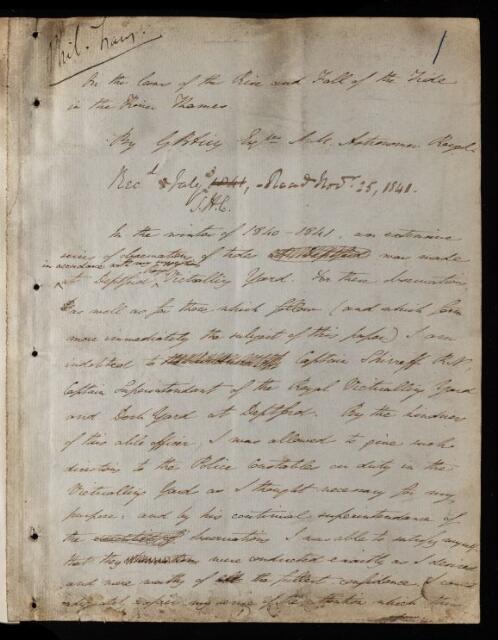 Phil. Trans.
1
On the Laws of the Rise and Fall of the Tide
in the River Thames
By G B Airy Esqre A.M. Astronomer Royal.
Recd July 3 1841, - Read Novr. 25, 1841.
S.H.C.
In the winter of 1840-1841, an extensive
series of observations of tides at Deptford was made
in accordance with my
at Deptford Victualling Yard. For these observations,
as well as for those which follow (and which form
more immediately the subject of this paper) I am
indebted to Captain Shirreff R.N.,
Captain Superintendent of the Royal Victualling Yard
and Dock Yard at Deptford. By the kindness
of this able officer, I was allowed to give such
directions to the Police Constables on duty in the
Victualling Yard as I thought necessary for my
purpose: and by his continual superintendence of
the observations I was able to satisfy myself
that they were conducted exactly as I desired
and were worthy of the fullest confidence. I cannot
my sense of the attention which